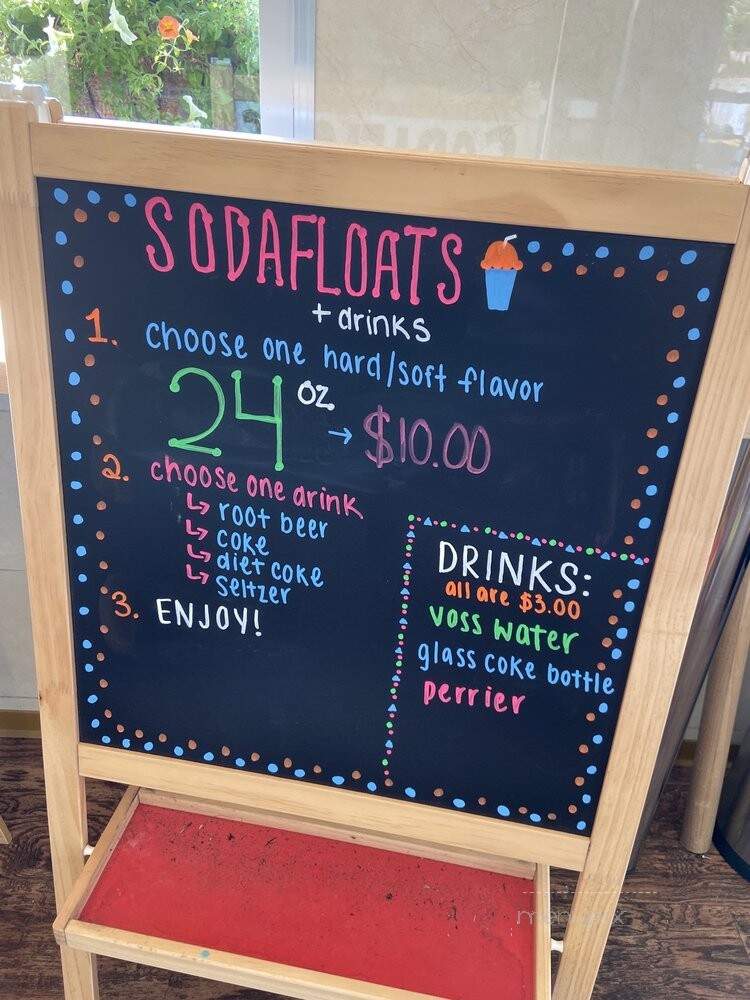 SODAFLOATS
+ drinks
1. choose one hard/soft flavor
24 oz → $10.00
2. choose one drink
↳ root beer
↳ coke
↳ diet coke
↳ seltzer
3. ENJOY!
DRINKS:
all are $3.00
voss water
glass coke bottle
perrier